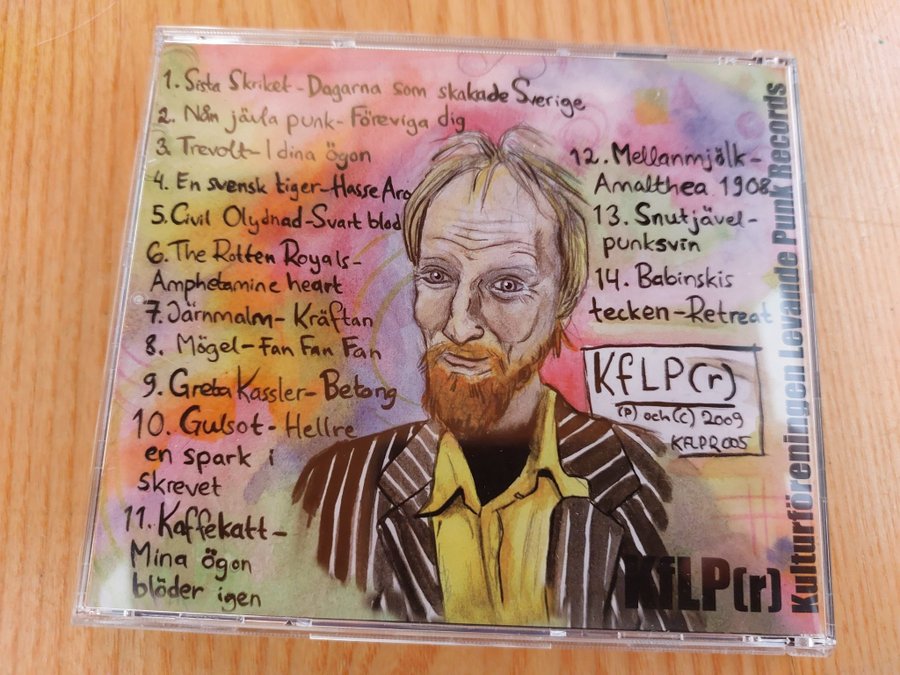 1. Sista Skriket - Dagarna som skakade Sverige
2. Nån jävla punk - Föreviga dig
3. Trevolt - I dina ögon
4. En svensk tiger - Hasse Aro
5. Civil Olydnad - Svart blod
6. The Rotten Royals -
Amphetamine heart
7. Järnmalm - Kräftan
8. Mögel - Fan Fan Fan
9. Greta Kassler - Betong
10. Gulsot - Hellre
en spark i
skrevet
11. Kaffekatt -
Mina ögon
blöder igen
12. Mellanmjölk -
Amalthea 1908
13. Snutjävel -
punksvin
14. Babinskis
tecken - Retreat
KfLP(r)
(P) och (C) 2009
KFLPR005
KfLP(r)
Kulturföreningen Levande Punk Records